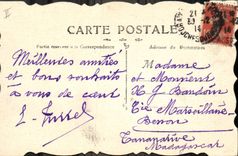 CARTE POSTALE
Partie réservée à la Correspondance
Adresse du Destinataire
Meilleures amitiés
et bons souhaits
à vous de cœur
Madame
et Monsieur
H Baudoin
Cie Marseillaise
Tananarive
Madagascar